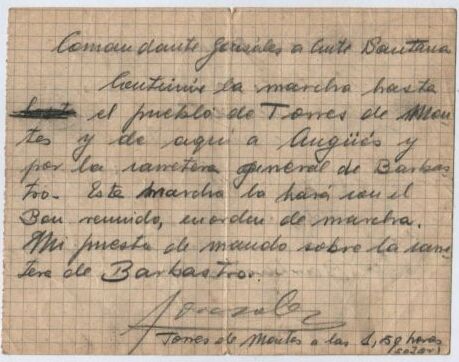 Comandante Gonsáles a Cmte Bantana
Continúe la marcha hasta
el pueblo de Torres de Mon
tes y de aqui a Angüés y
por la carretera general de Barbas
tro. Esta marcha la hará con el
Bon reunido, en orden de marcha.
Mi puesto de mando sobre la carre
tera de Barbastro.
Gonzalez
Torres de Montes a las 1,50 horas